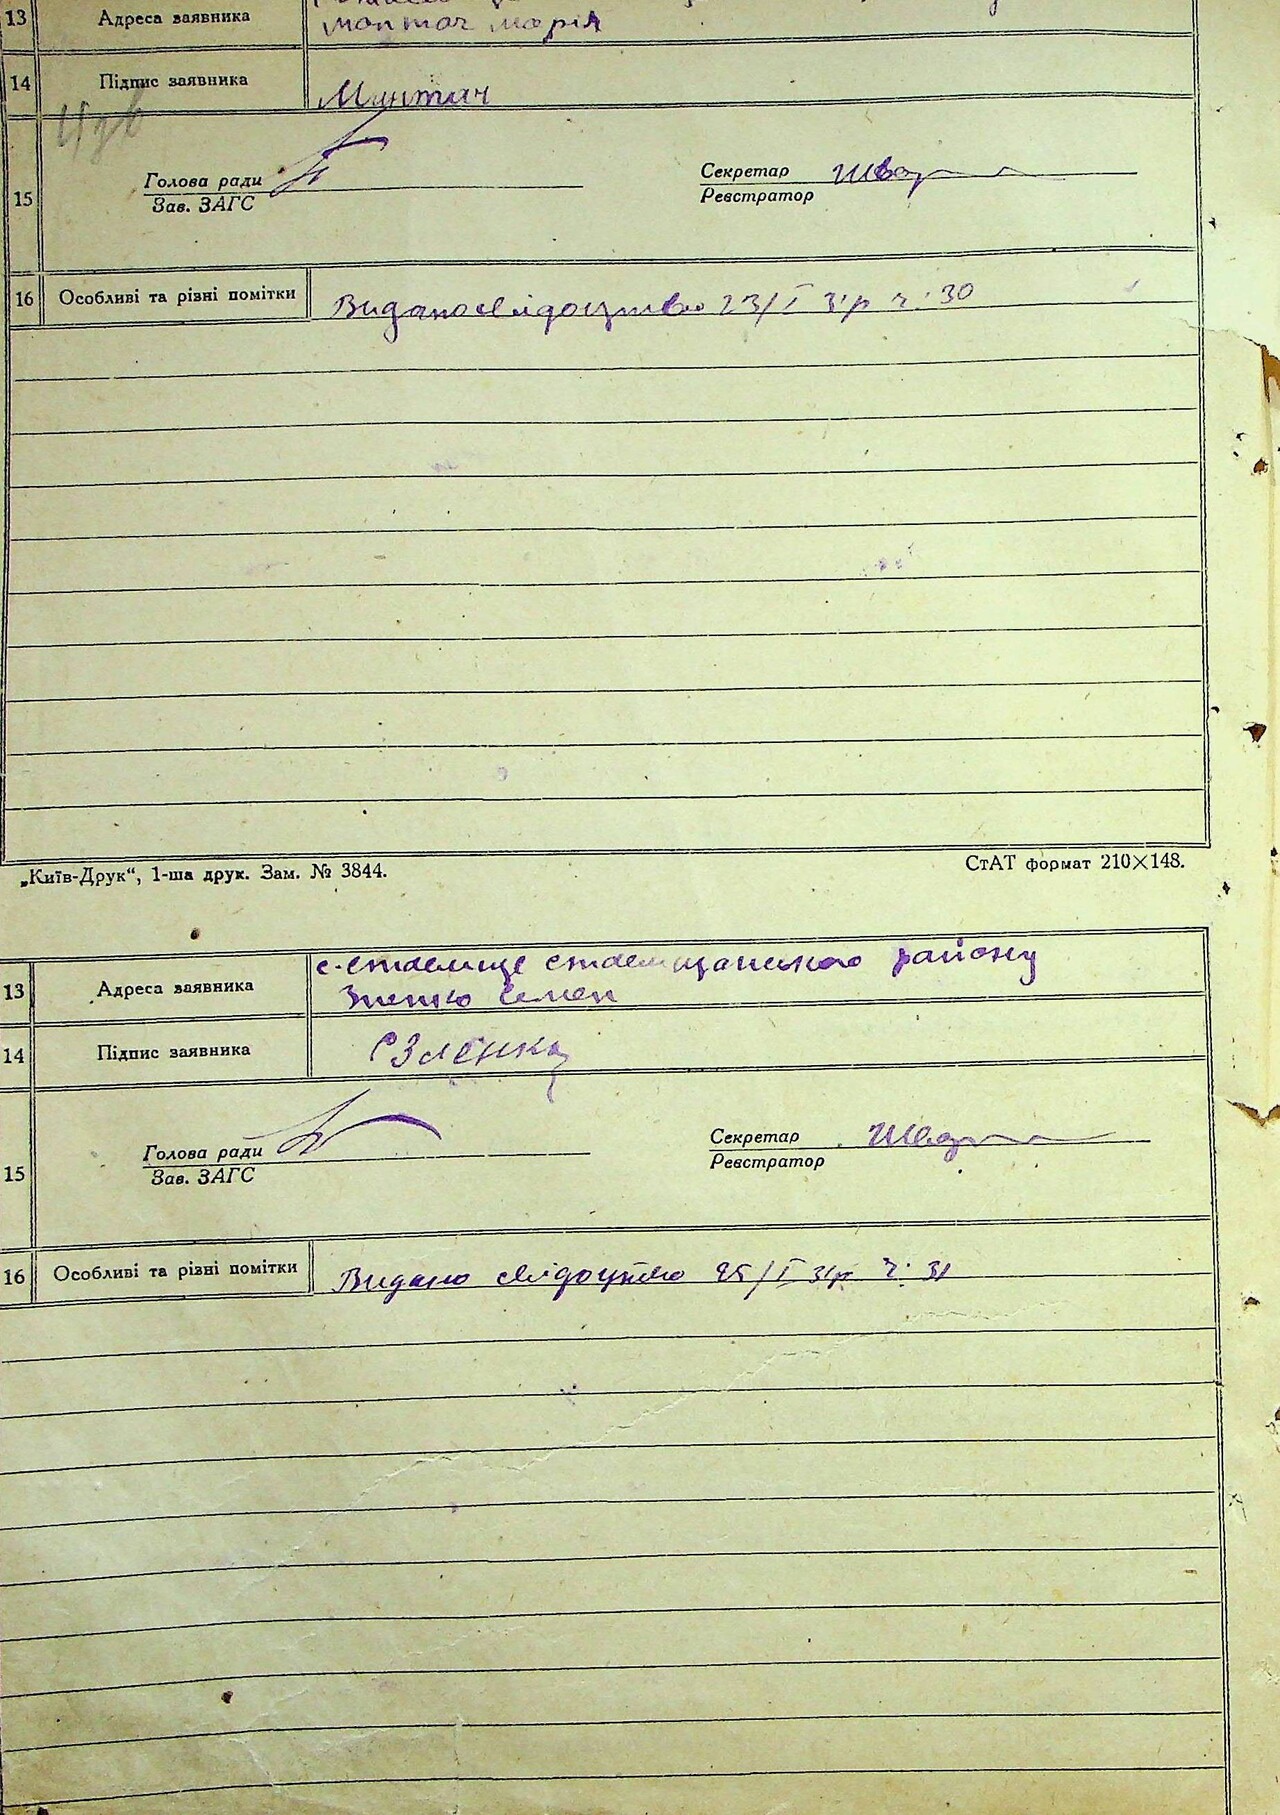 13 Адреса заявника
Монтач Марія
14 Підпис заявника Монтач
Голова ради Секретар
15 Зав. ЗАГС Реєстратор
16 Особливі та різні помітки Видано свідоцтво 23/I 31р ч. 30
„Київ-Друк“, 1-ша друк. Зам. № 3844. СтАТ формат 210×148.
13 Адреса заявника с. Ставище Ставищанського району
Зленко Семен
14 Підпис заявника С Зленко
Голова ради Секретар
15 Зав. ЗАГС Реєстратор
16 Особливі та різні помітки Видано свідоцтво 25/I 31р ч. 31